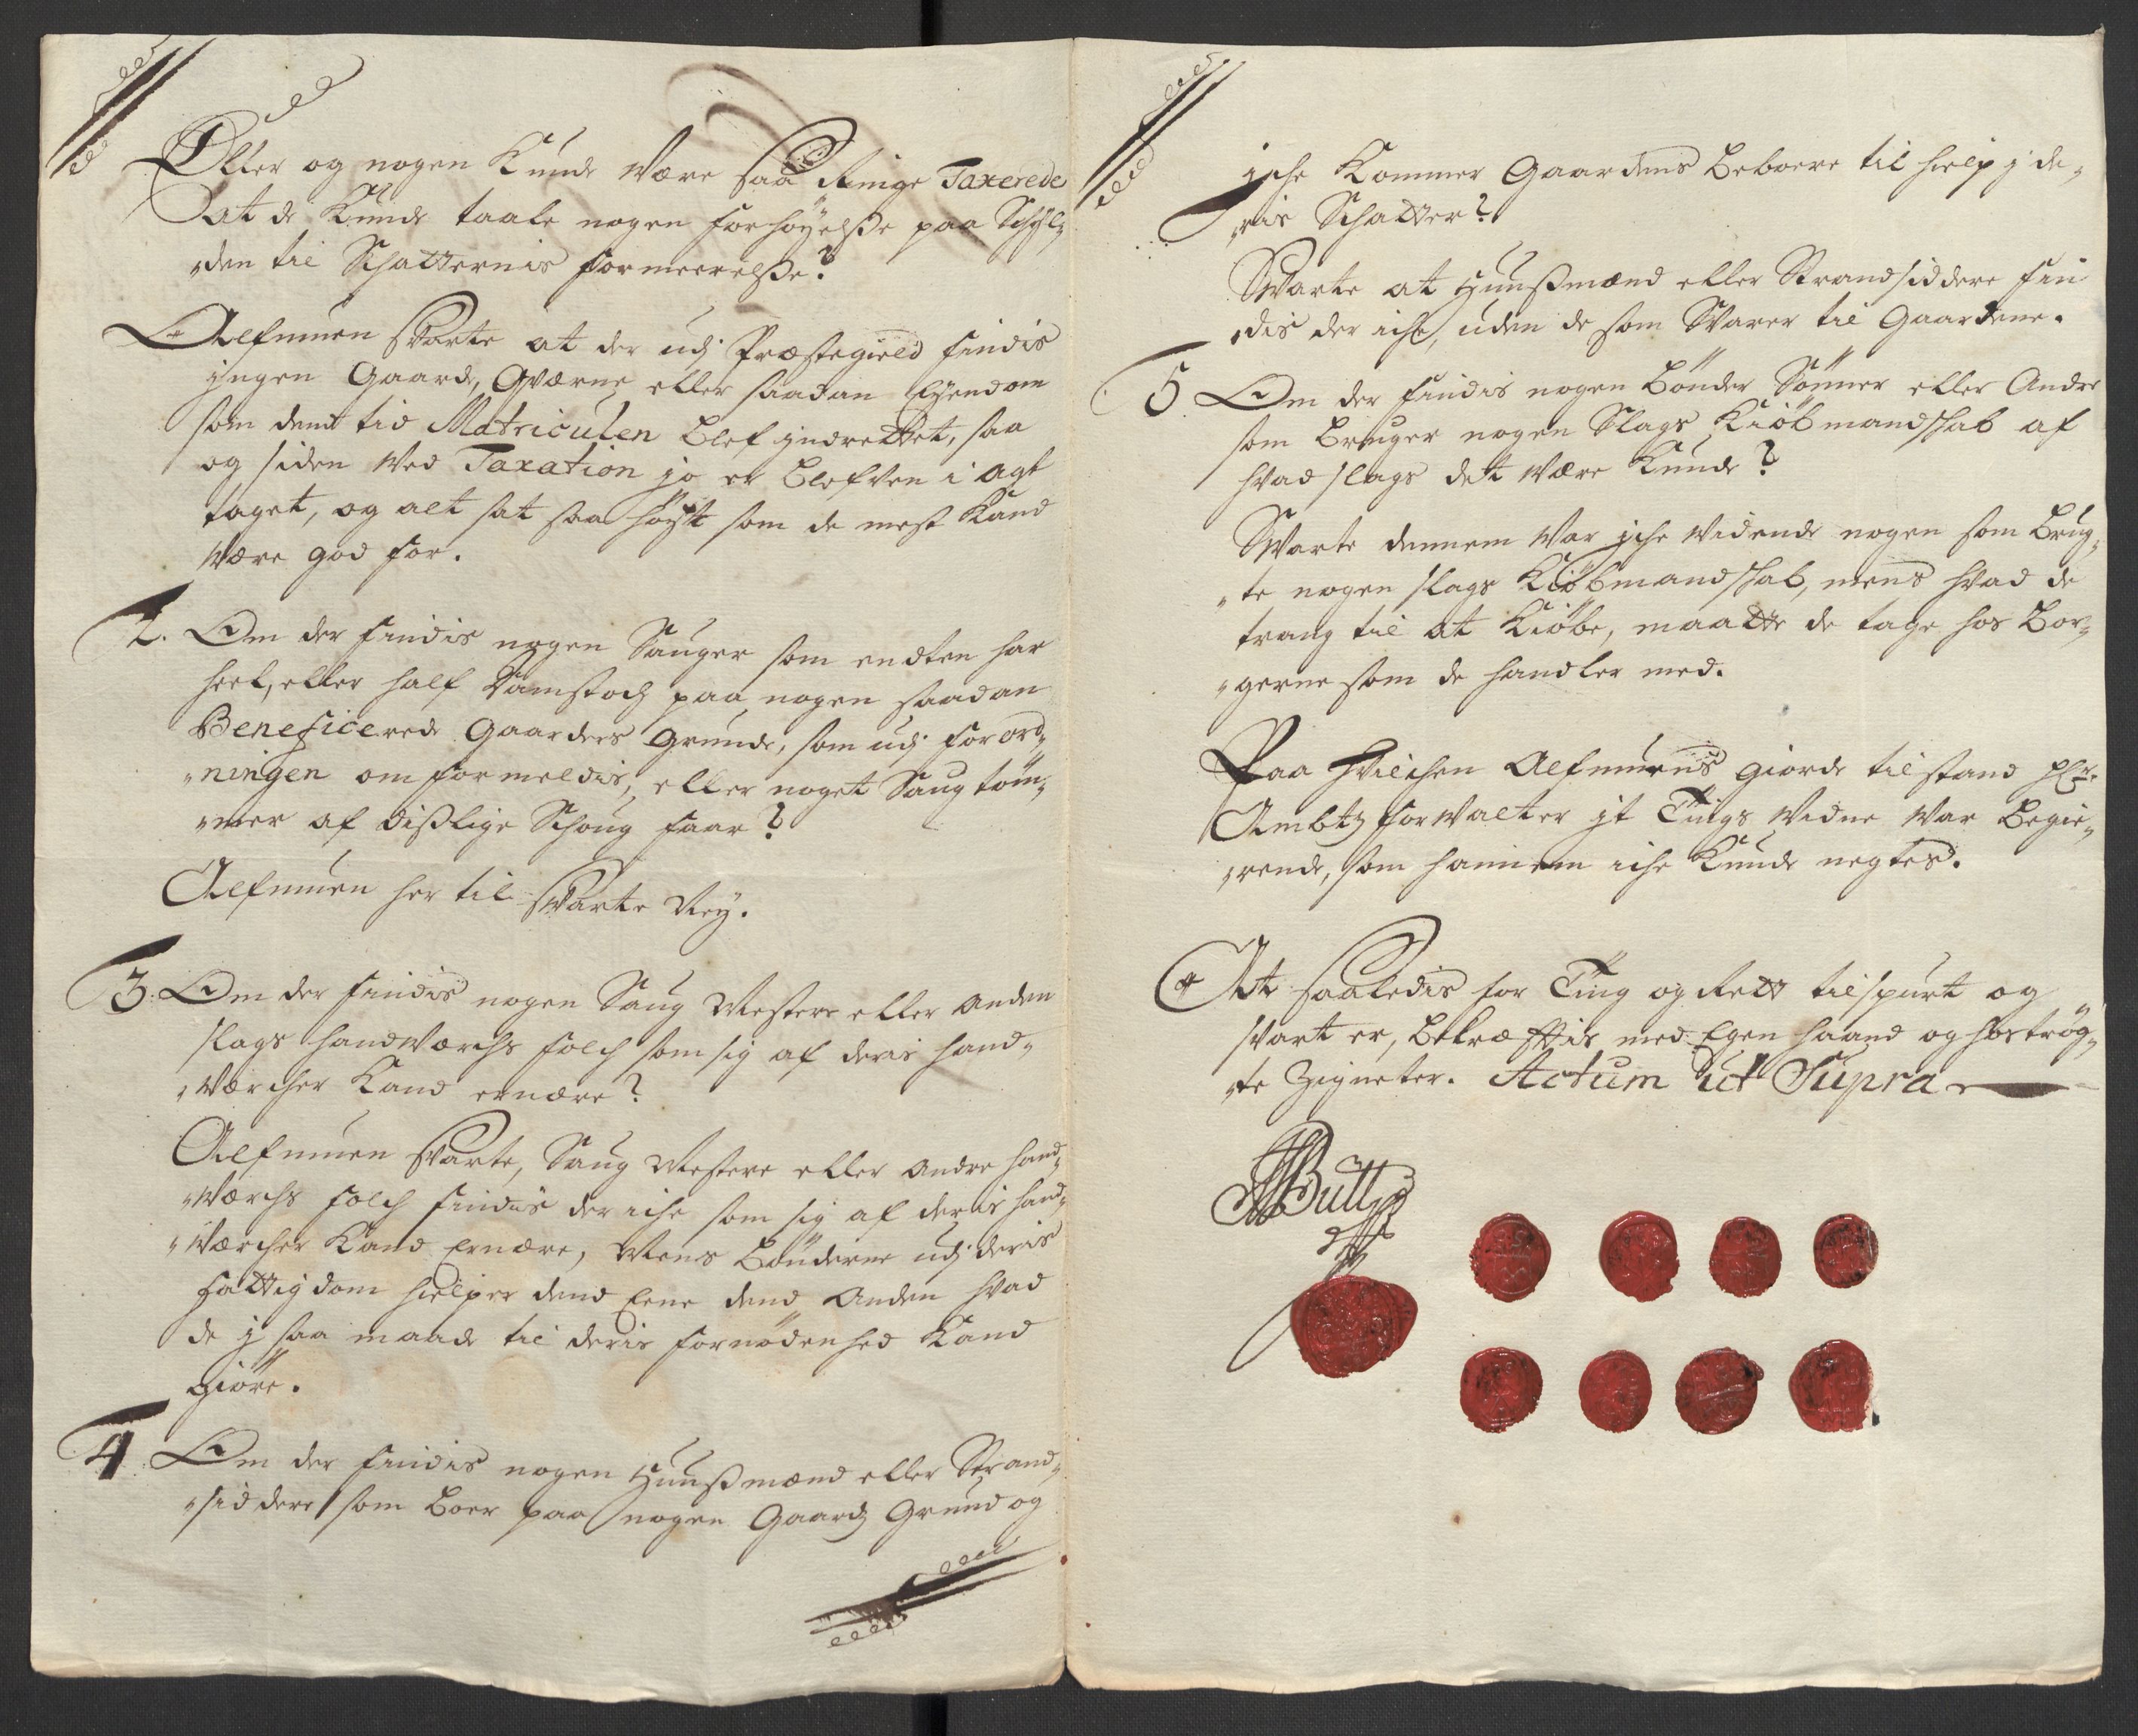 Eller og nogen Kunde være saa Ringe Taxerede
at de Kunde taale nogen forhøyelsse paa Schyl„
„den til Schatternis formeerelsse?
Alfmuen svarte at der udj Præstegield findis
jngen Gaarde, Qværne eller saadan Eyendom
som dend tid Matriculen blef jndrettet, saa
og siden ved Taxation jo er blefven i agt
taget, og alt sat saa høyt som de mest Kand
være god for.
2. Om der findis nogen Sauger som endten har
heel, eller half Damstoch paa nogen saadan
Beneficerede Gaarders grunde, som udj forord„
„ningen om formeldis, eller noget Saug tøm„
„mer af dißlige Schoug faar?
Alfmuen her til svarte Ney.
3. Om der findis nogen Saug Mestere eller anden
slags handværchs folch som sig af deris hand„
„værcher Kand ernære?
Alfmuen svarte, Saug Mestere eller andre hand„
„værchs folch findis der iche som sig af deris hand„
„værcher Kand Ernære, Mens Bønderne udj deris
fattigdom hielper dend Eene dend Anden hvad
de j saa maade til deris fornødenhed Kand
giøre.
4 Om der findis nogen Huußmænd eller Strand„
„siddere som boer paa nogen Gaards Grund og
iche Kommer Gaardens beboere til hielp j de„
„ris Schatter?
Svarte at Huußmænd eller Strandsiddere fin
„dis der iche, uden de som Svarer til Gaardene.
5. Om der findis nogen Bønder Sønner eller Andre
som bruger nogen Slags Kiøbmandschab af
hvad slags det være Kunde?
Svarte dennem var jche vidende nogen som brug„
„te nogen slags Kiøbmandschab, mens hvad de
trang til at Kiøbe, maatte de tage hos Bor„
„gerne som de handler med.
Paa hvilchen Alfmuens giorde tilstand
Ambtz forvalter jt Tings vidne var begie„
„rende, som hannem iche Kunde negtes.
At saaledis for Ting og Rett tilspurt og
svart er, bekræfftis med Egen haand og hostrøg„
„te Zigneter. Actum ut Supra